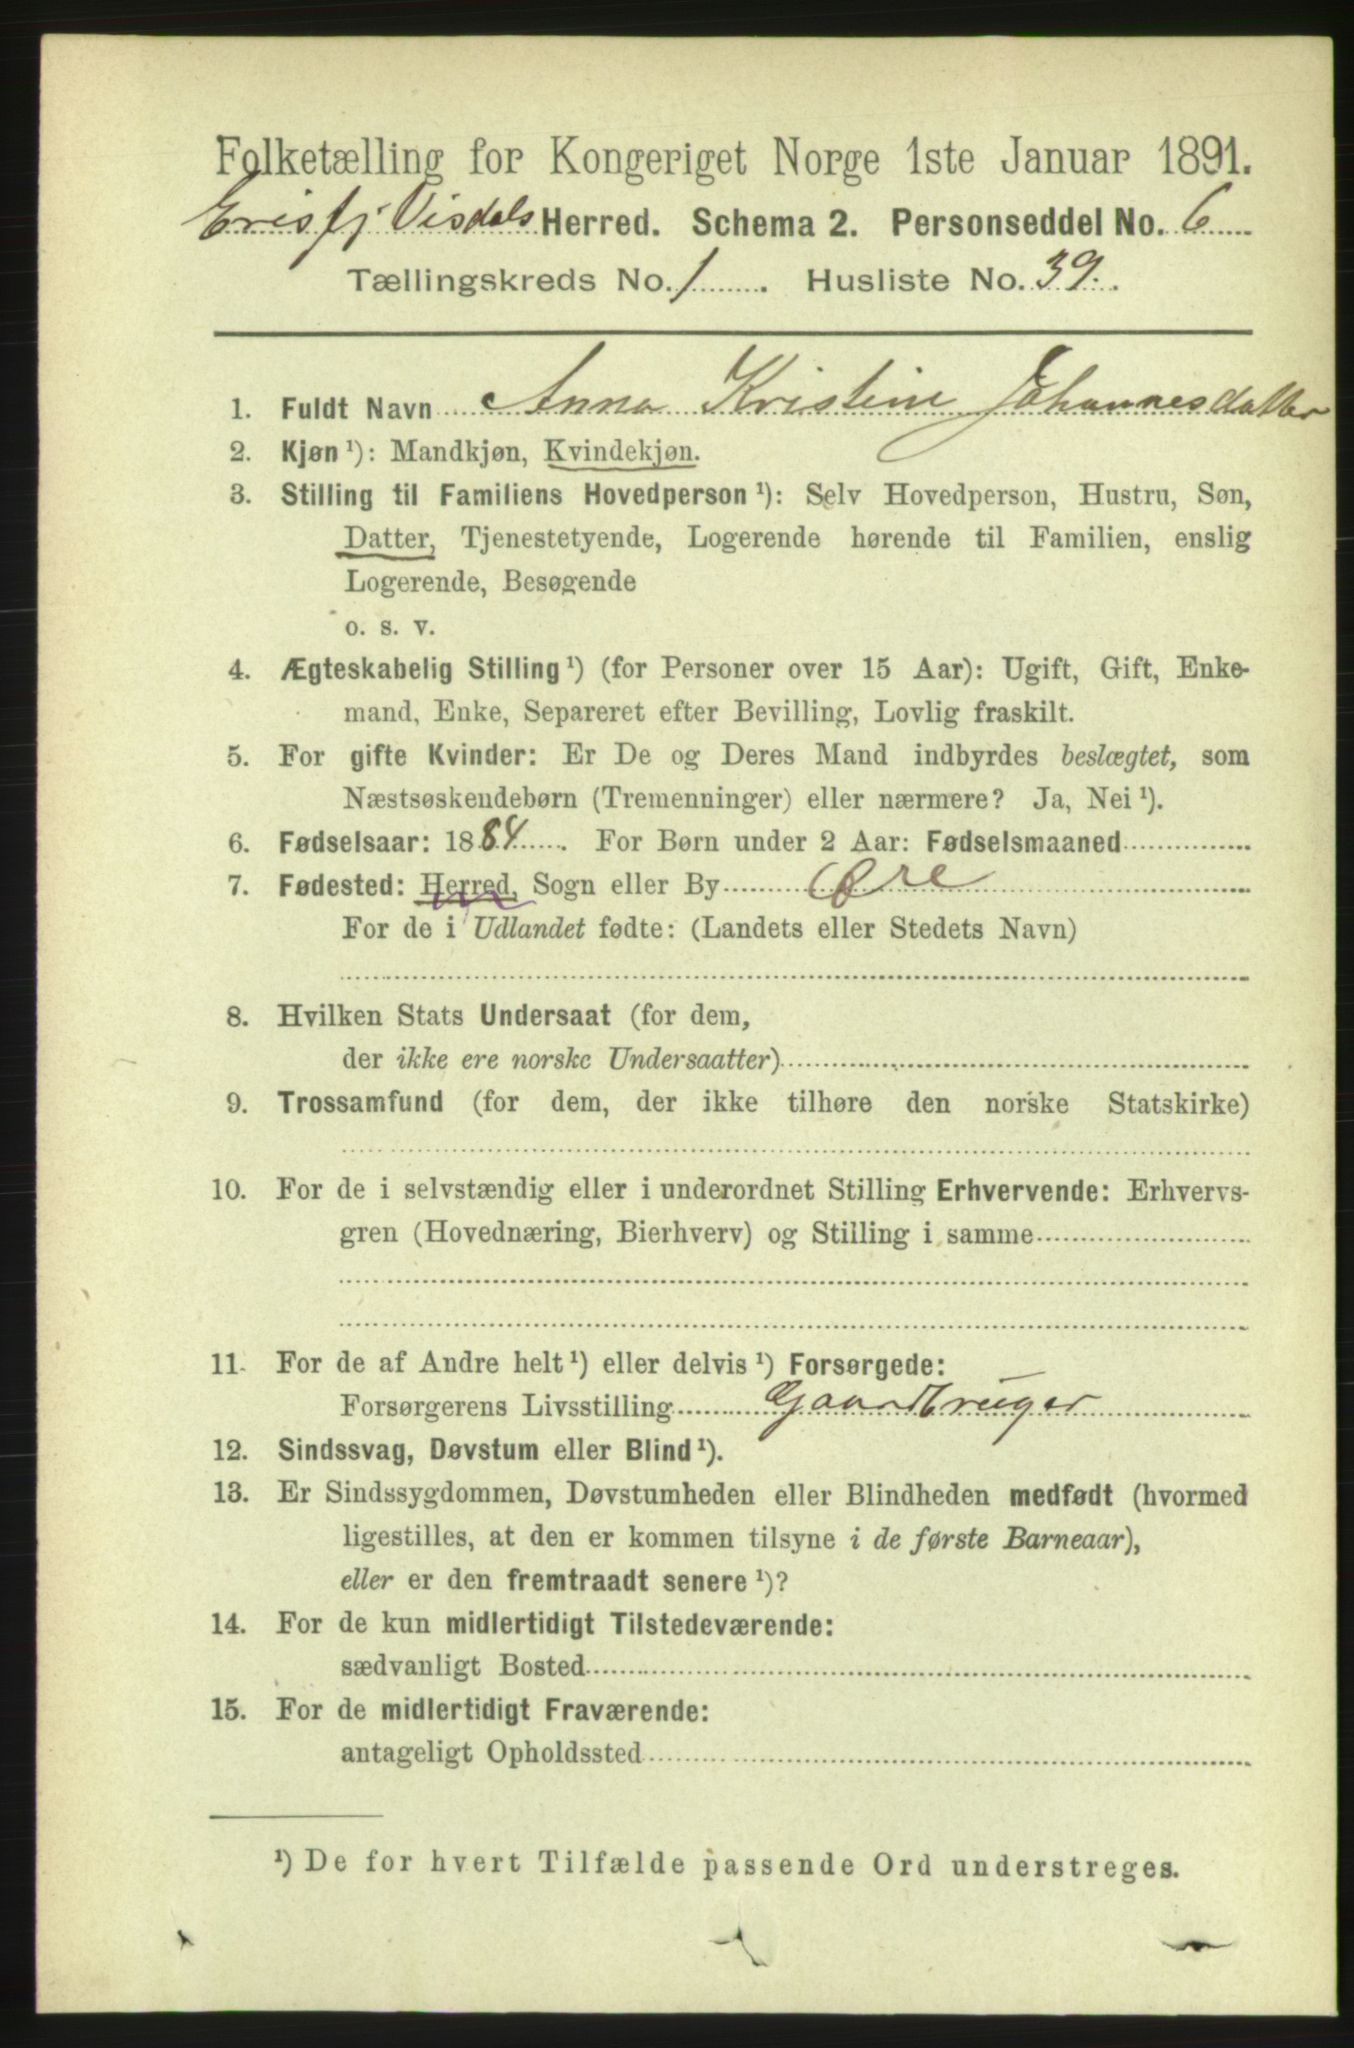 Folketælling for Kongeriget Norge 1ste Januar 1891.
Erisfj Visdals Herred. Schema 2. Personseddel No. 6
Tællingskreds No. 1. Husliste No. 39.
1. Fuldt Navn Anna Kristine Johannesdatter
2. Kjøn ¹): Mandkjøn, Kvindekjøn.
3. Stilling til Familiens Hovedperson ¹): Selv Hovedperson, Hustru, Søn,
Datter, Tjenestetyende, Logerende hørende til Familien, enslig
Logerende, Besøgende
o. s. v.
4. Ægteskabelig Stilling ¹) (for Personer over 15 Aar): Ugift, Gift, Enke-
mand, Enke, Separeret efter Bevilling, Lovlig fraskilt.
5. For gifte Kvinder: Er De og Deres Mand indbyrdes beslægtet, som
Næstsøskendebørn (Tremenninger) eller nærmere? Ja, Nei ¹).
6. Fødselsaar: 1884. For Børn under 2 Aar: Fødselsmaaned
7. Fødested: Herred, Sogn eller By Øre
For de i Udlandet fødte: (Landets eller Stedets Navn)
8. Hvilken Stats Undersaat (for dem,
der ikke ere norske Undersaatter)
9. Trossamfund (for dem, der ikke tilhøre den norske Statskirke)
10. For de i selvstændig eller i underordnet Stilling Erhvervende: Erhvervs-
gren (Hovednæring, Bierhverv) og Stilling i samme
11. For de af Andre helt ¹) eller delvis ¹) Forsørgede:
Forsørgerens Livsstilling Gaardbruger
12. Sindssvag, Døvstum eller Blind ¹).
13. Er Sindssygdommen, Døvstumheden eller Blindheden medfødt (hvormed
ligestilles, at den er kommen tilsyne i de første Barneaar),
eller er den fremtraadt senere ¹)?
14. For de kun midlertidigt Tilstedeværende:
sædvanligt Bosted
15. For de midlertidigt Fraværende:
antageligt Opholdssted
¹) De for hvert Tilfælde passende Ord understreges.